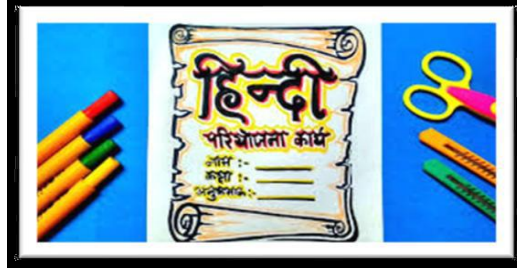 हिन्दी
परियोजना कार्य
नाम :-
कक्षा :-
अनुक्रमांक :-